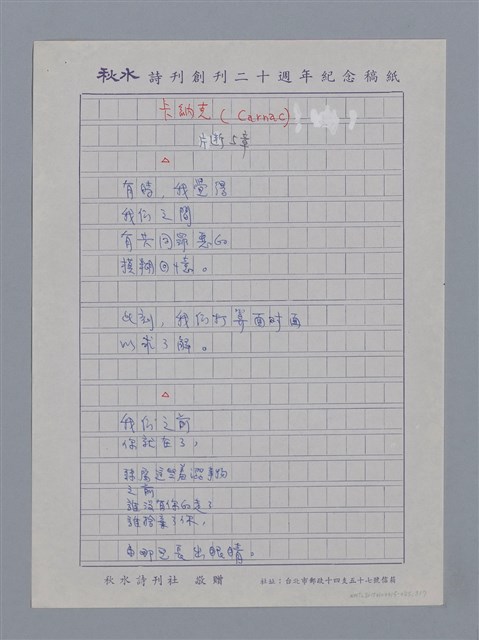 秋水 詩刊創刊二十週年紀念稿紙
卡納克 (Carnac)
片断 5章
△
有時，我覺得
我们之間
有共同罪惡的
模糊回憶。
此刻，我们打算面对面
以求了解。
△
我们之前
你就在了，
之前
誰捨棄了你，
長出眼睛。
秋水詩刊社 敬贈
社址：台北市郵政十四支五十七號信箱